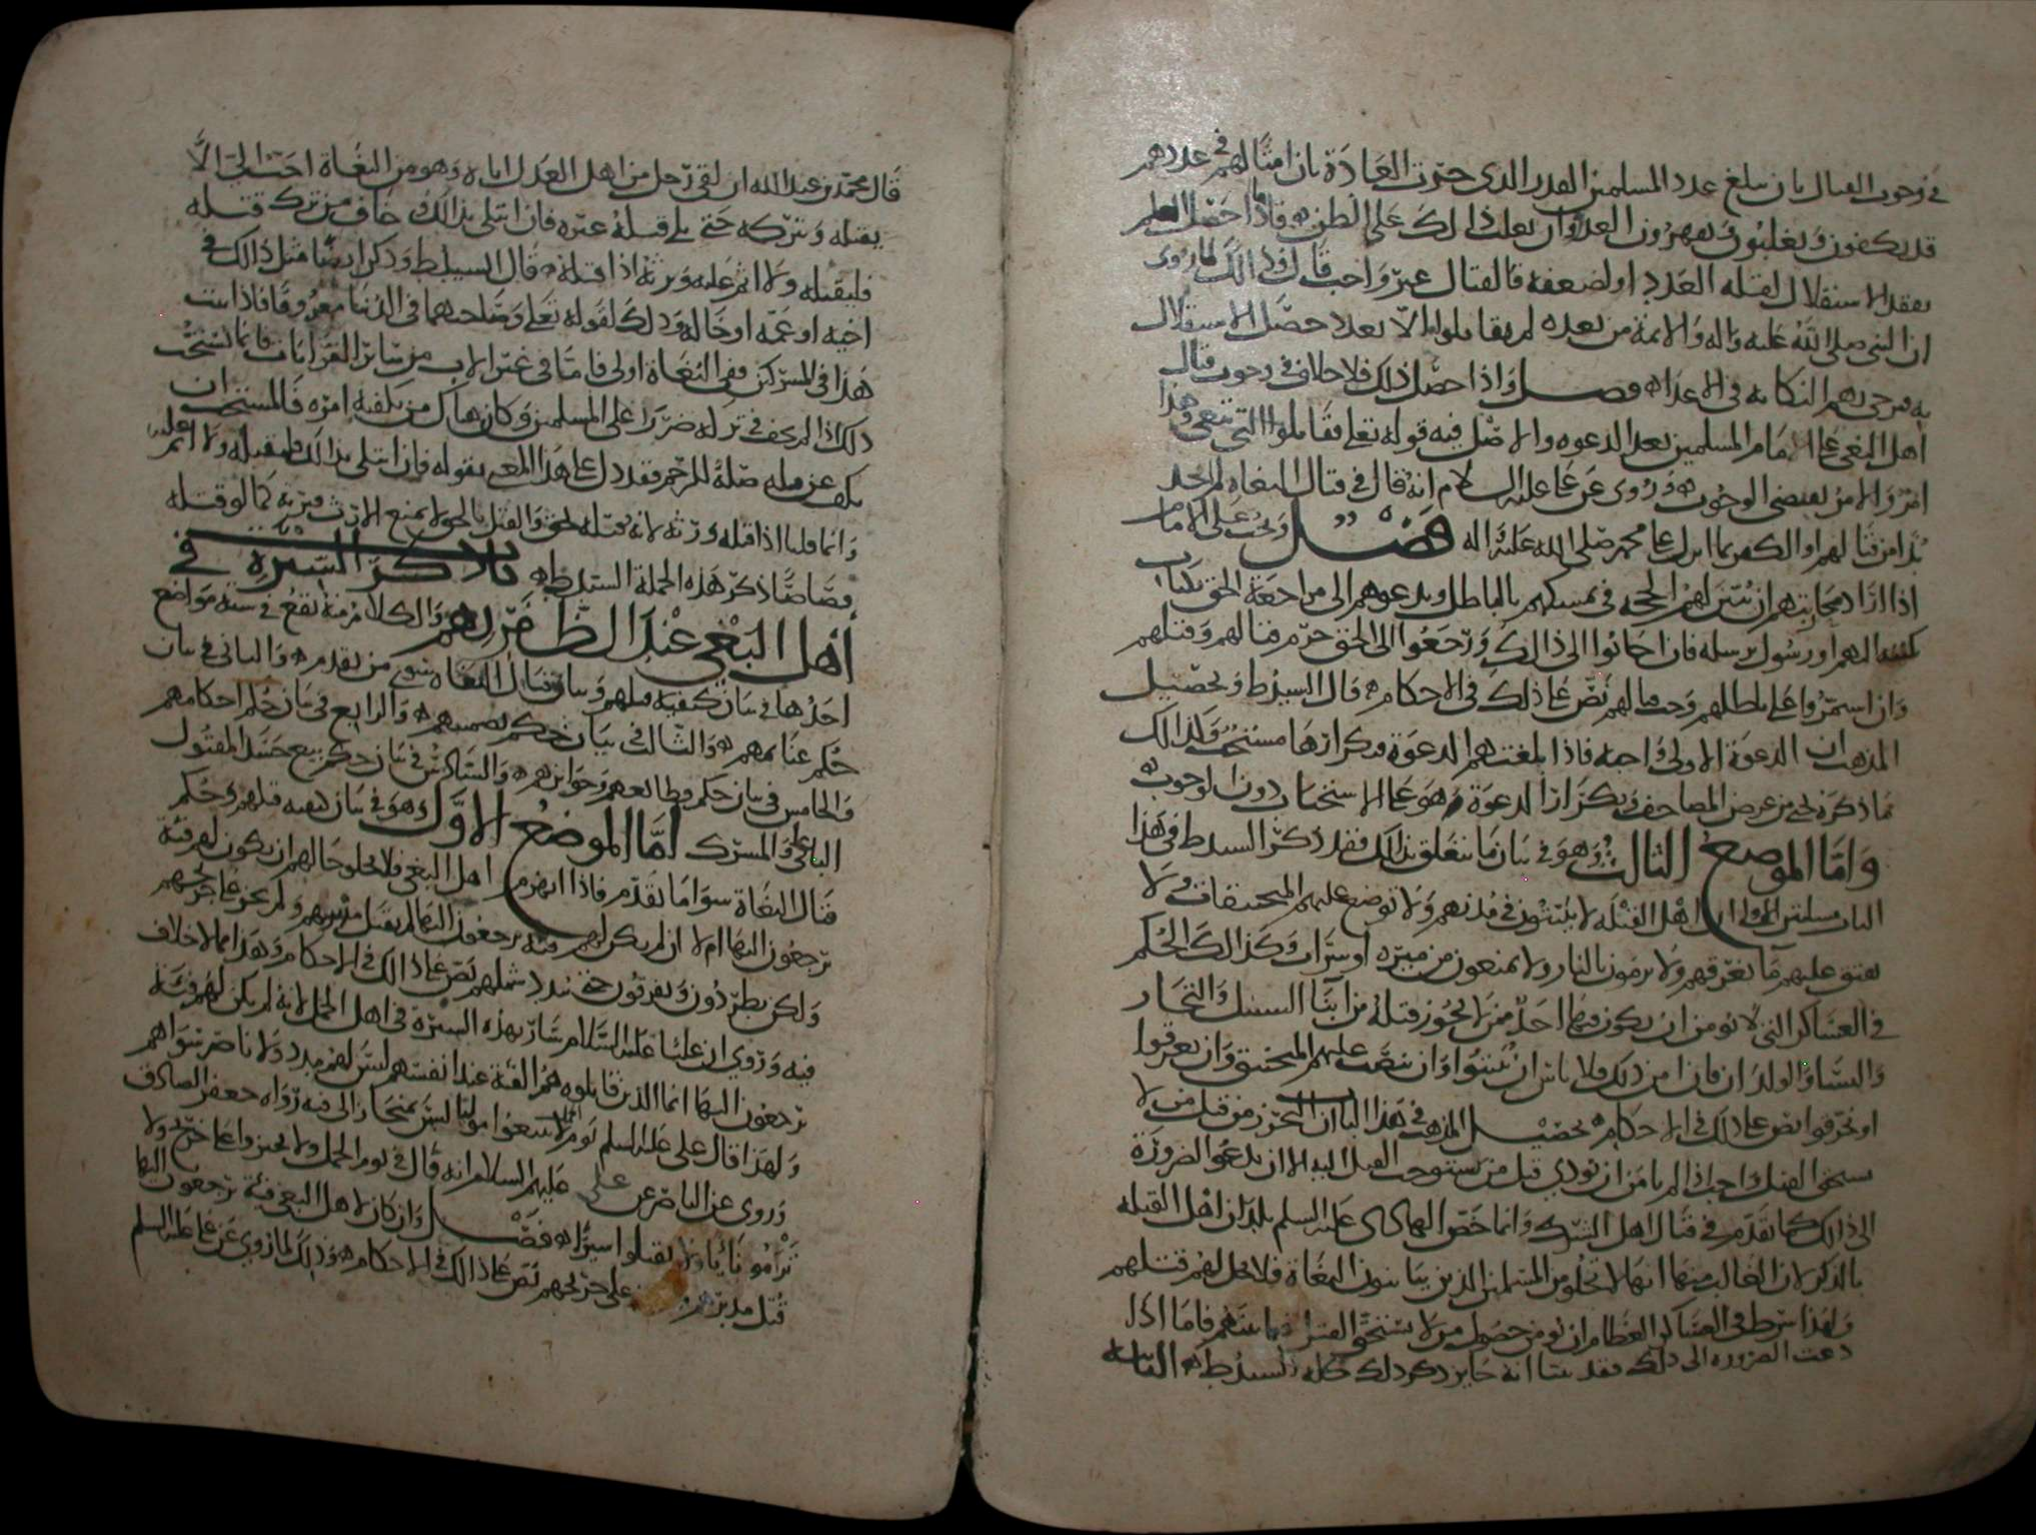 في وجوب القتال بان يبلغ عدد المسلمين القدر الذي جرت العادة بان امثالهم في عددهم
قد يكفون ويغلبون ويقهرون العدو وان يغلب ذلك على الظن فاذا حصل العلم
بفقد الاستقلال لقلة العدد او لضعفه فالقتال غير واجب قال وذالك لما روي
ان النبي صلى الله عليه واله والائمة من بعده لم يقاتلوا الا بعد حصل الاستقلال
به فيرجى بهم النكاية في الاعداء فصل واذا حصل ذلك فلا خلاف في وجوب قتال
اهل البغي على الامام المسلمين بعد الدعوه والاصل فيه قوله تعلى فقاتلوا التي تبغي وهذا
امر والامر يقتضي الوجوب وروي عن علي عليه السلام انه قال في قتال البغاه لم اجد
بدا من قتالهم او الكفر بما انزل على محمد صلى الله عليه واله فصل ويجب على الامام
اذا اراد محاربتهم ان يبين لهم الحجه في تمسكهم بالباطل ويدعوهم الى مراجعة الحق بكتاب
يكتبه اليهم او رسول يرسله فان اجابوا الى ذالك ورجعوا الى الحق حرم قتالهم وقتلهم
وان استمروا على باطلهم وجب قتالهم نص على ذلك في الاحكام قال السيد ط وتحصيل
المذهب ان الدعوة الاولى واجبه فاذا بلغتهم الدعوة فتكرارها مستحب وكذالك
ما ذكره يحيى من عرض المصاحف وتكرار الدعوة وهو على الاستحباب دون الوجوب
واما الموضع الثالث وهو في بيان ما يتعلق بذلك فقد ذكر السيد ط في هذا
الباب مسلتين الاولى ان اهل القبله لا يبيتون في مدنهم ولا توضع عليهم المنجنيقات ولا
يفتق عليهم ما يغرقهم ولا يرمون بالنار ولا يمنعون من ميره او شراب وكذالك الحكم
في العساكر التي لا نومن ان يكون فيها احد من لا يجوز قتله من ابناء السبيل والتجار
والنساء والولدان فان امن ذلك فلا باس ان يبيتوا وان ينصب عليهم المنجنيق وان يغرقوا
او يحرقوا نص على ذلك في الاحكام تحصيل المذهب في هذا الباب ان التحرز من قتل من لا
يستحق القتل واجب اذا لم نامن ان يودي قتل من يستوجب القتل اليه الا ان تدعو الضرورة
الى ذالك كما تقدم في قتال اهل الشرك وانما خص الهادي عليه السلم بلدان اهل القبله
بالذكر لان الغالب منها انها لا تخلو من المسلمين الذين يباينون البغاة فلا يحل لهم قتلهم
ولهذا شرط في العساكر العظام ان نومن حصول من لا يستحق القتل فيما بينهم فاما اذا
دعت الضروره الى ذلك فقد بينا انه جايز ذكر ذلك كله السيد ط الثانيه
قال محمد بن عبد الله ان لقي رجل من اهل العدل اباه وهو من البغاة احب الي الا
يقتله ويتركه حتى يلي قتله غيره فان ابتلى بذالك وخاف من ترك قتله
فليقتله ولا اثم عليه ويرثه اذا قتله قال السيد ط وذكر ايضا مثل ذالك في
اخيه او عمه او خاله وذلك لقوله تعلى وصاحبهما في الدنيا معروفا فاذا ثبت
هذا في المشركين ففي البغاة اولى فاما في غير الاب من سائر القرابات فانما يستحب
ذلك اذا لم يخف في تركه ضررا على المسلمين وكان هناك من يكفيه امره فالمستحب ان
يكف عن قتله صلة للرحم فقد دل على هذا المعنى بقوله فان ابتلى بذالك فليقتله ولا اثم عليه
وانما قلنا اذا قتله ورثه لانه قتله بحق والقتل بالحق لا يمنع الارث فيرثه كما لو قتله
قصاصا ذكر هذه الجملة السيد ط باب ذكر السيرة في
اهل البغي عند الظفر بهم والكلام منه يقع في ستة مواضع
احدها في بيان كيفية قتلهم وبيان قتال البغاه سوى من تقدم والثاني في بيان
حكم غنائمهم والثالث في بيان حكم تضمينهم والرابع في بيان حكم احكامهم
والخامس في بيان حكم قطائعهم وجوائزهم والسادس في بيان حكم بيع جسد المقتول
الباغي والمشرك اما الموضع الاول وهو في بيان كيفيه قتلهم وحكم
قتال البغاة سوا ما تقدم فاذا انهزم اهل البغي فلا يخلو حالهم ان يكون لهم فئة
يرجعون اليها ام لا ان لم يكن لهم فئة يرجعون اليها لم يقتل مدبرهم ولم يجز على جريحهم
ولكن يطردون ويفرقون حتى يتبدد شملهم نص على ذالك في الاحكام وهذا مما لا خلاف
فيه وروي ان عليا عليه السلام سار بهذه السيرة في اهل الجمل لانه لم يكن لهم فئة
يرجعون اليها انما الذين قاتلوه هم الفئة عند انفسهم ليس لهم مدد ولا ناصر سواهم
ولهذا قال علي عليه السلم يوم الجمل لا تتبعوا موليا ليس بمنحاز الى فئة رواه جعفر الصادق
وروي عن الناصر عن علي عليهم السلام انه قال في يوم الجمل ولا تجيزوا على جريح ولا
تراموا نائيا ولا تقتلوا اسيرا فصل وان كان لاهل البغي فئة يرجعون اليها
قتل مدبرهم على جريحهم نص على ذالك في الاحكام وذلك لما روي عن علي عليه السلم